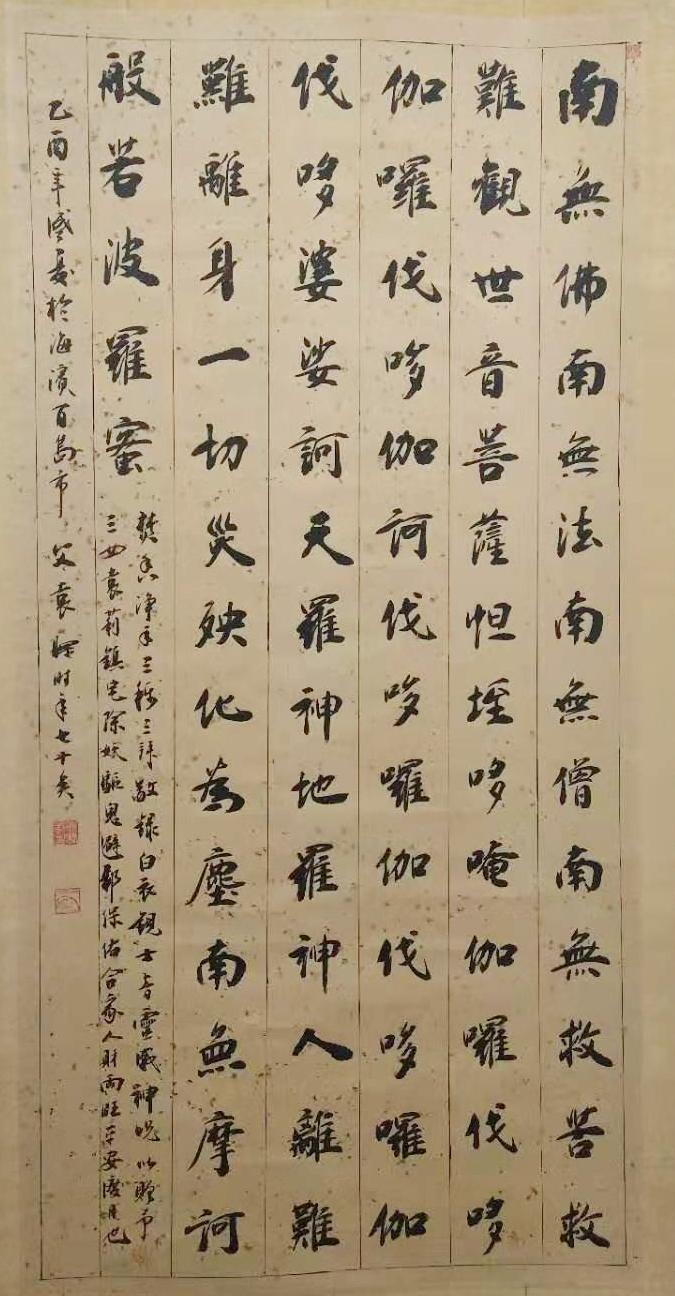 南無佛南無法南無僧南無救苦救
難觀世音菩薩怛垤哆唵伽囉伐哆
伽囉伐哆伽訶伐哆囉伽伐哆囉伽
伐哆婆娑訶天羅神地羅神人離難
難離身一切災殃化為塵南無摩訶
般若波羅蜜
焚香淨手三稽三拜敬錄白衣觀士音靈感神咒以贈予
三女袁莉鎮宅除妖驅鬼避邪保佑合家人財兩旺平安度日也
乙酉年盛夏於海濱百島市 父袁 時年七十矣